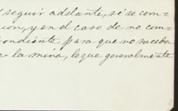 seguir adelante, si se com-
cion, y en el caso de no com-
pondiente para que no suceba
a la mina, lo que generalmente